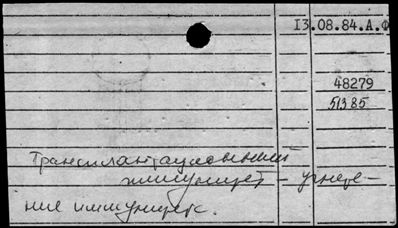 13.08.84.А.Ф
48279
51385
Трансплантационный
иммунитет - угнете-
ние иммунитета.